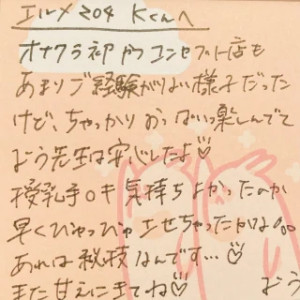 エルメ204 Kくんへ
オナクラ初かつコンセプト店も
あまりご経験がない様子だった
けど、ちゃっかりおっぱい楽しんでて
どう先生は安心したよ♡
授乳手〇キ気持ちよかったのか
早くぴゅっぴゅエせちゃったかな。。
あれは秘技なんです…♡
また甘えにきてね♡